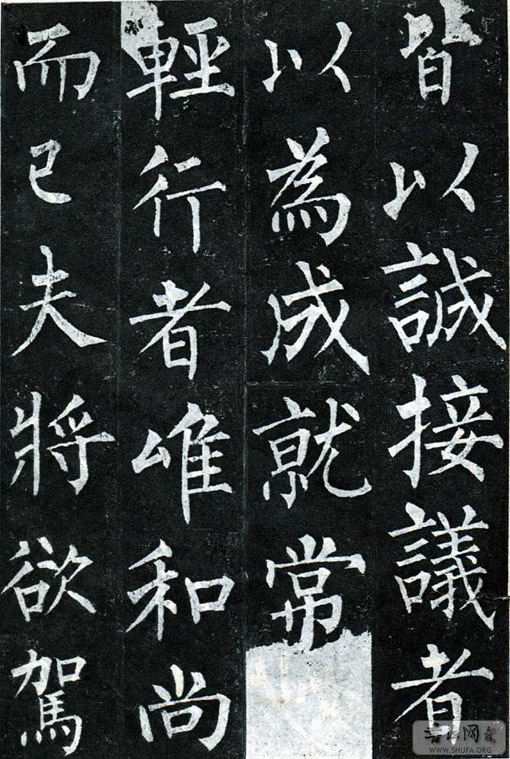 皆以誠接議者
以為成就常
輕行者唯和尚
而已夫將欲駕
书法网
WWW.SHUFA.ORG